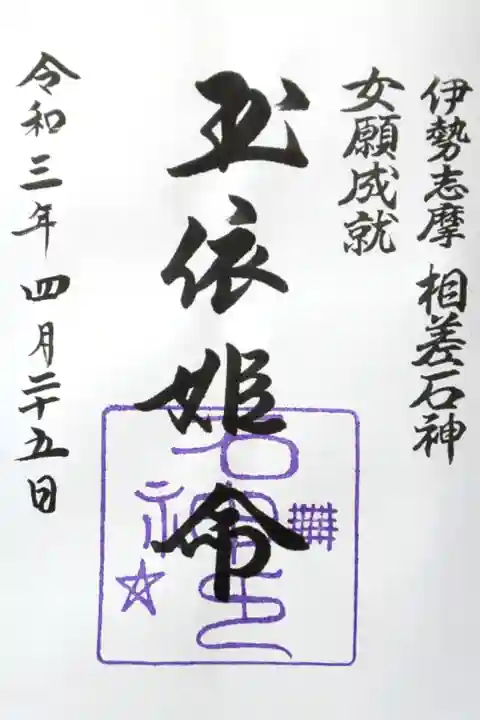 伊勢志摩 相差石神
女願成就
玉依姫命
令和三年四月二十五日
石神